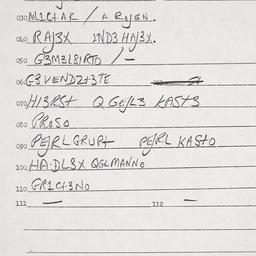 030 MLCHAK / A RUJGN.
040 RAJ3X IND3 HAJ3X.
050 G3M3L8IRTO / —
060 G3VENDZ+3TE
070 HI3RS+ Q GEJL3 KAST3
080 PROSO
090 PEJRLGRUP+ PEJRL KASTO
100 HA·DL3X QGLMANNO
110 GR1C+3NO
111 — 112 —